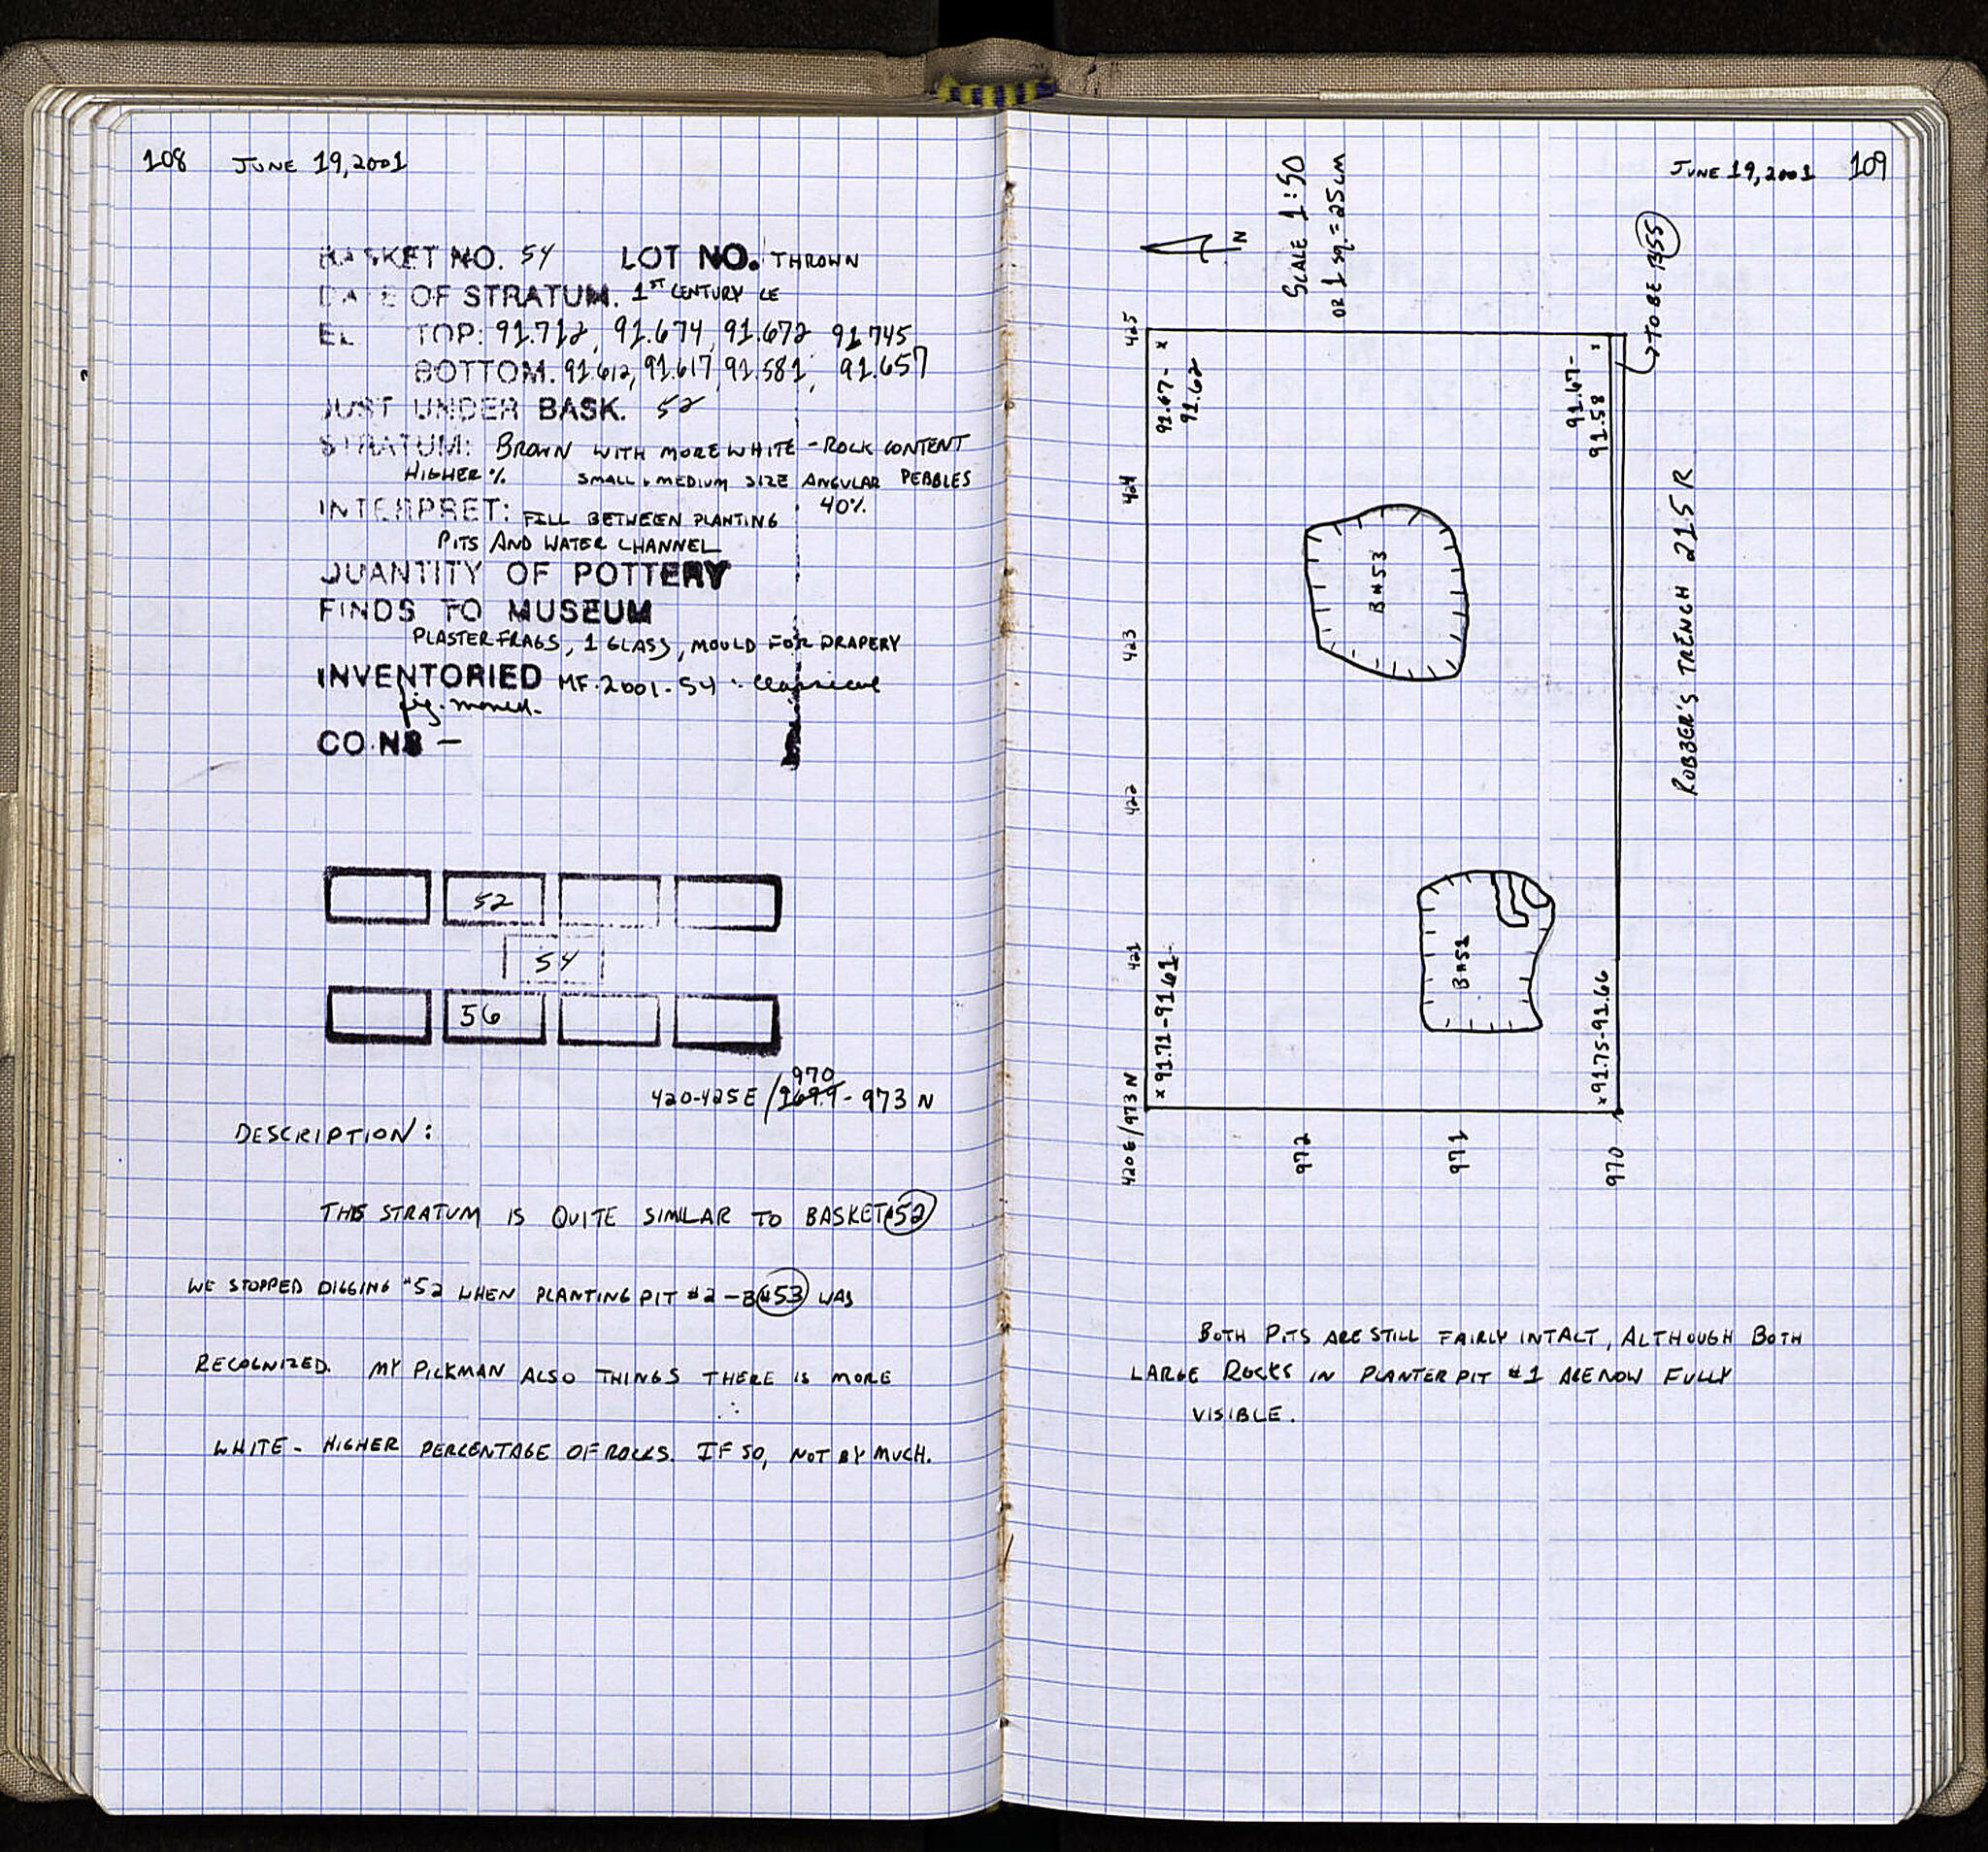 108 JUNE 19, 2001
BASKET NO. 54 LOT NO. THROWN
DATE OF STRATUM. 1ST CENTURY CE
EL TOP: 91.712, 91.674, 91.672 91.745
BOTTOM. 91.612, 91.617, 91.581, 91.657
JUST UNDER BASK. 52
STRATUM: BROWN WITH MORE WHITE - ROCK CONTENT
HIGHER % SMALL & MEDIUM SIZE ANGULAR PEBBLES
40%
INTERPRET: FILL BETWEEN PLANTING
PITS AND WATER CHANNEL
QUANTITY OF POTTERY
FINDS TO MUSEUM
PLASTER FRAGS, 1 GLASS, MOULD FOR DRAPERY
INVENTORIED MF.2001.54: Classical
fig. mould.
COINS —
52
54
56
970
420-425E/969.9-973 N
DESCRIPTION:
THIS STRATUM IS QUITE SIMILAR TO BASKET 52
WE STOPPED DIGGING #52 WHEN PLANTING PIT #2 - B#53 WAS
RECOGNIZED. MY PICKMAN ALSO THINGS THERE IS MORE
WHITE - HIGHER PERCENTAGE OF ROCKS. IF SO, NOT BY MUCH.
JUNE 19, 2001 109
N
SCALE 1:50
OR 1 SQ. = 25CM
TO BE B55
425
91.67-
91.62
91.67-
91.58
424
B#53
423
ROBBER'S TRENCH 215R
422
421
B#51
×91.71-91.61
×91.75-91.66
420E/973N
972
971
970
BOTH PITS ARE STILL FAIRLY INTACT, ALTHOUGH BOTH
LARGE ROCKS IN PLANTER PIT #1 ARE NOW FULLY
VISIBLE.